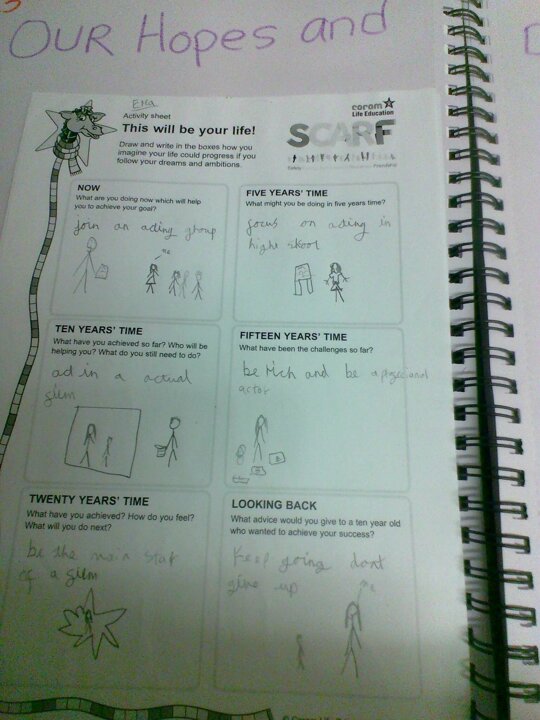 OUR Hopes and
Ella
Activity sheet
This will be your life!
Draw and write in the boxes how you
imagine your life could progress if you
follow your dreams and ambitions.
coram
Life Education
SCARF
Safety
Friendship
NOW
What are you doing now which will help
you to achieve your goal?
join an acting group
me
FIVE YEARS' TIME
What might you be doing in five years time?
focus on acting in
high skool
TEN YEARS' TIME
What have you achieved so far? Who will be
helping you? What do you still need to do?
act in a actual
film
FIFTEEN YEARS' TIME
What have been the challenges so far?
be rich and be a
actor
TWENTY YEARS' TIME
What have you achieved? How do you feel?
What will you do next?
be the main star
of a film
LOOKING BACK
What advice would you give to a ten year old
who wanted to achieve your success?
Keep going dont
give up
me